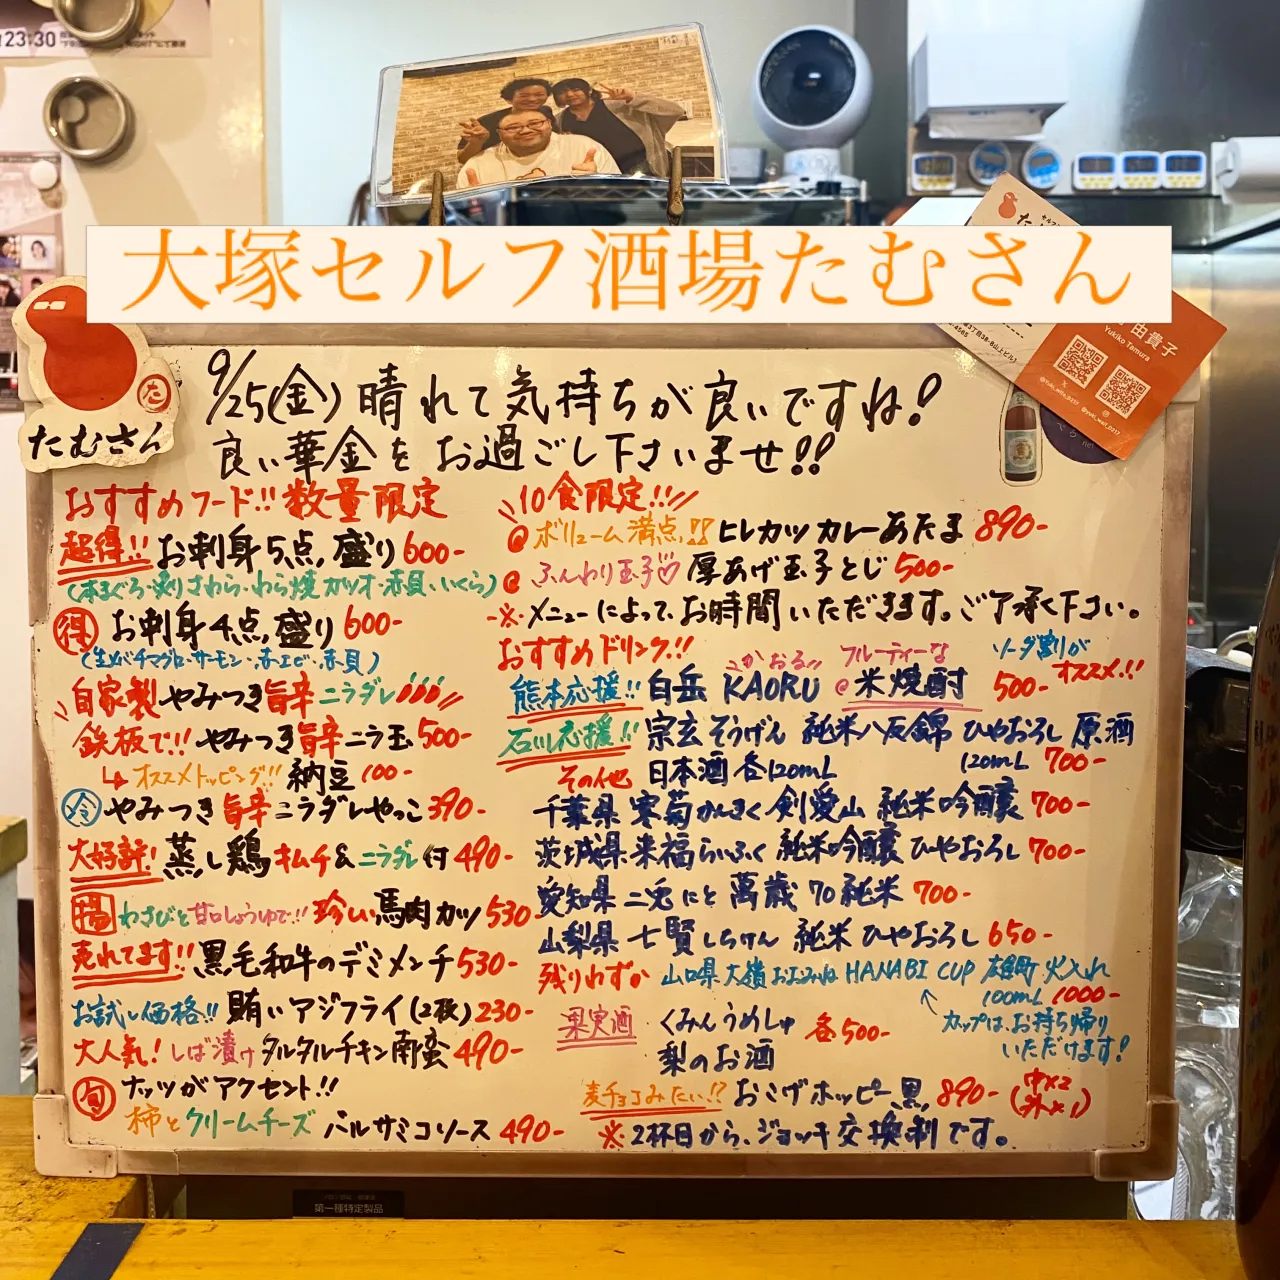 23:30
大塚セルフ酒場たむさん
由貴子
Yukiko Tamura
たむさん
9/25(金)晴れて気持ちが良いですね!
良い華金をお過ごし下さいませ!!
おすすめフード!!数量限定
超得!!お刺身5点盛り600-
(本まぐろ・炙りさわら・わら焼カツオ・赤貝・いくら)
得 お刺身4点盛り600-
(生メバチマグロ・サーモン・赤エビ・赤貝)
自家製やみつき旨辛ニラダレ
鉄板で!!やみつき旨辛ニラ玉500-
オススメトッピング!!納豆100-
冷 やみつき旨辛ニラダレやっこ390-
大好評!蒸し鶏キムチ&ニラダレ付490-
揚 わさびと甘口しょうゆで!!珍しい馬肉カツ530-
売れてます!!黒毛和牛のデミメンチ530-
お試し価格!!賄いアジフライ(2枚)230-
大人気!しば漬けタルタルチキン南蛮490-
旬 ナッツがアクセント!!
柿とクリームチーズバルサミコソース490-
10食限定!!
@ボリューム満点!!ヒレカツカレーあたま890-
@ふんわり玉子♡厚あげ玉子とじ500-
※メニューによってお時間いただきます。ご了承く下さい。
おすすめドリンク!!
かおる フルーティーな ソーダ割が
熊本応援!!白岳 KAORU @米焼酎 500-オススメ!!
石川応援!!宗玄そうげん 純米八反錦 ひやおろし 原酒
その他 日本酒各120mL 120mL 700-
千葉県 寒菊かんきく 剣愛山 純米吟醸 700-
茨城県 来福らいふく 純米吟醸 ひやおろし 700-
愛知県 二兎にと 萬歳70純米 700-
山梨県 七賢しちけん 純米 ひやおろし 650-
残りわずか 山口県大嶺おおみね HANABI CUP 雄町 火入れ
100mL 1000-
カップは、お持ち帰り
いただけます!
果実酒 くみんうめしゅ 各500-
梨のお酒
麦チョコみたい!?おこげホッピー黒 890-(中×2 外×1)
※2杯目から、ジョッキ交換制です。
第一種特定製品